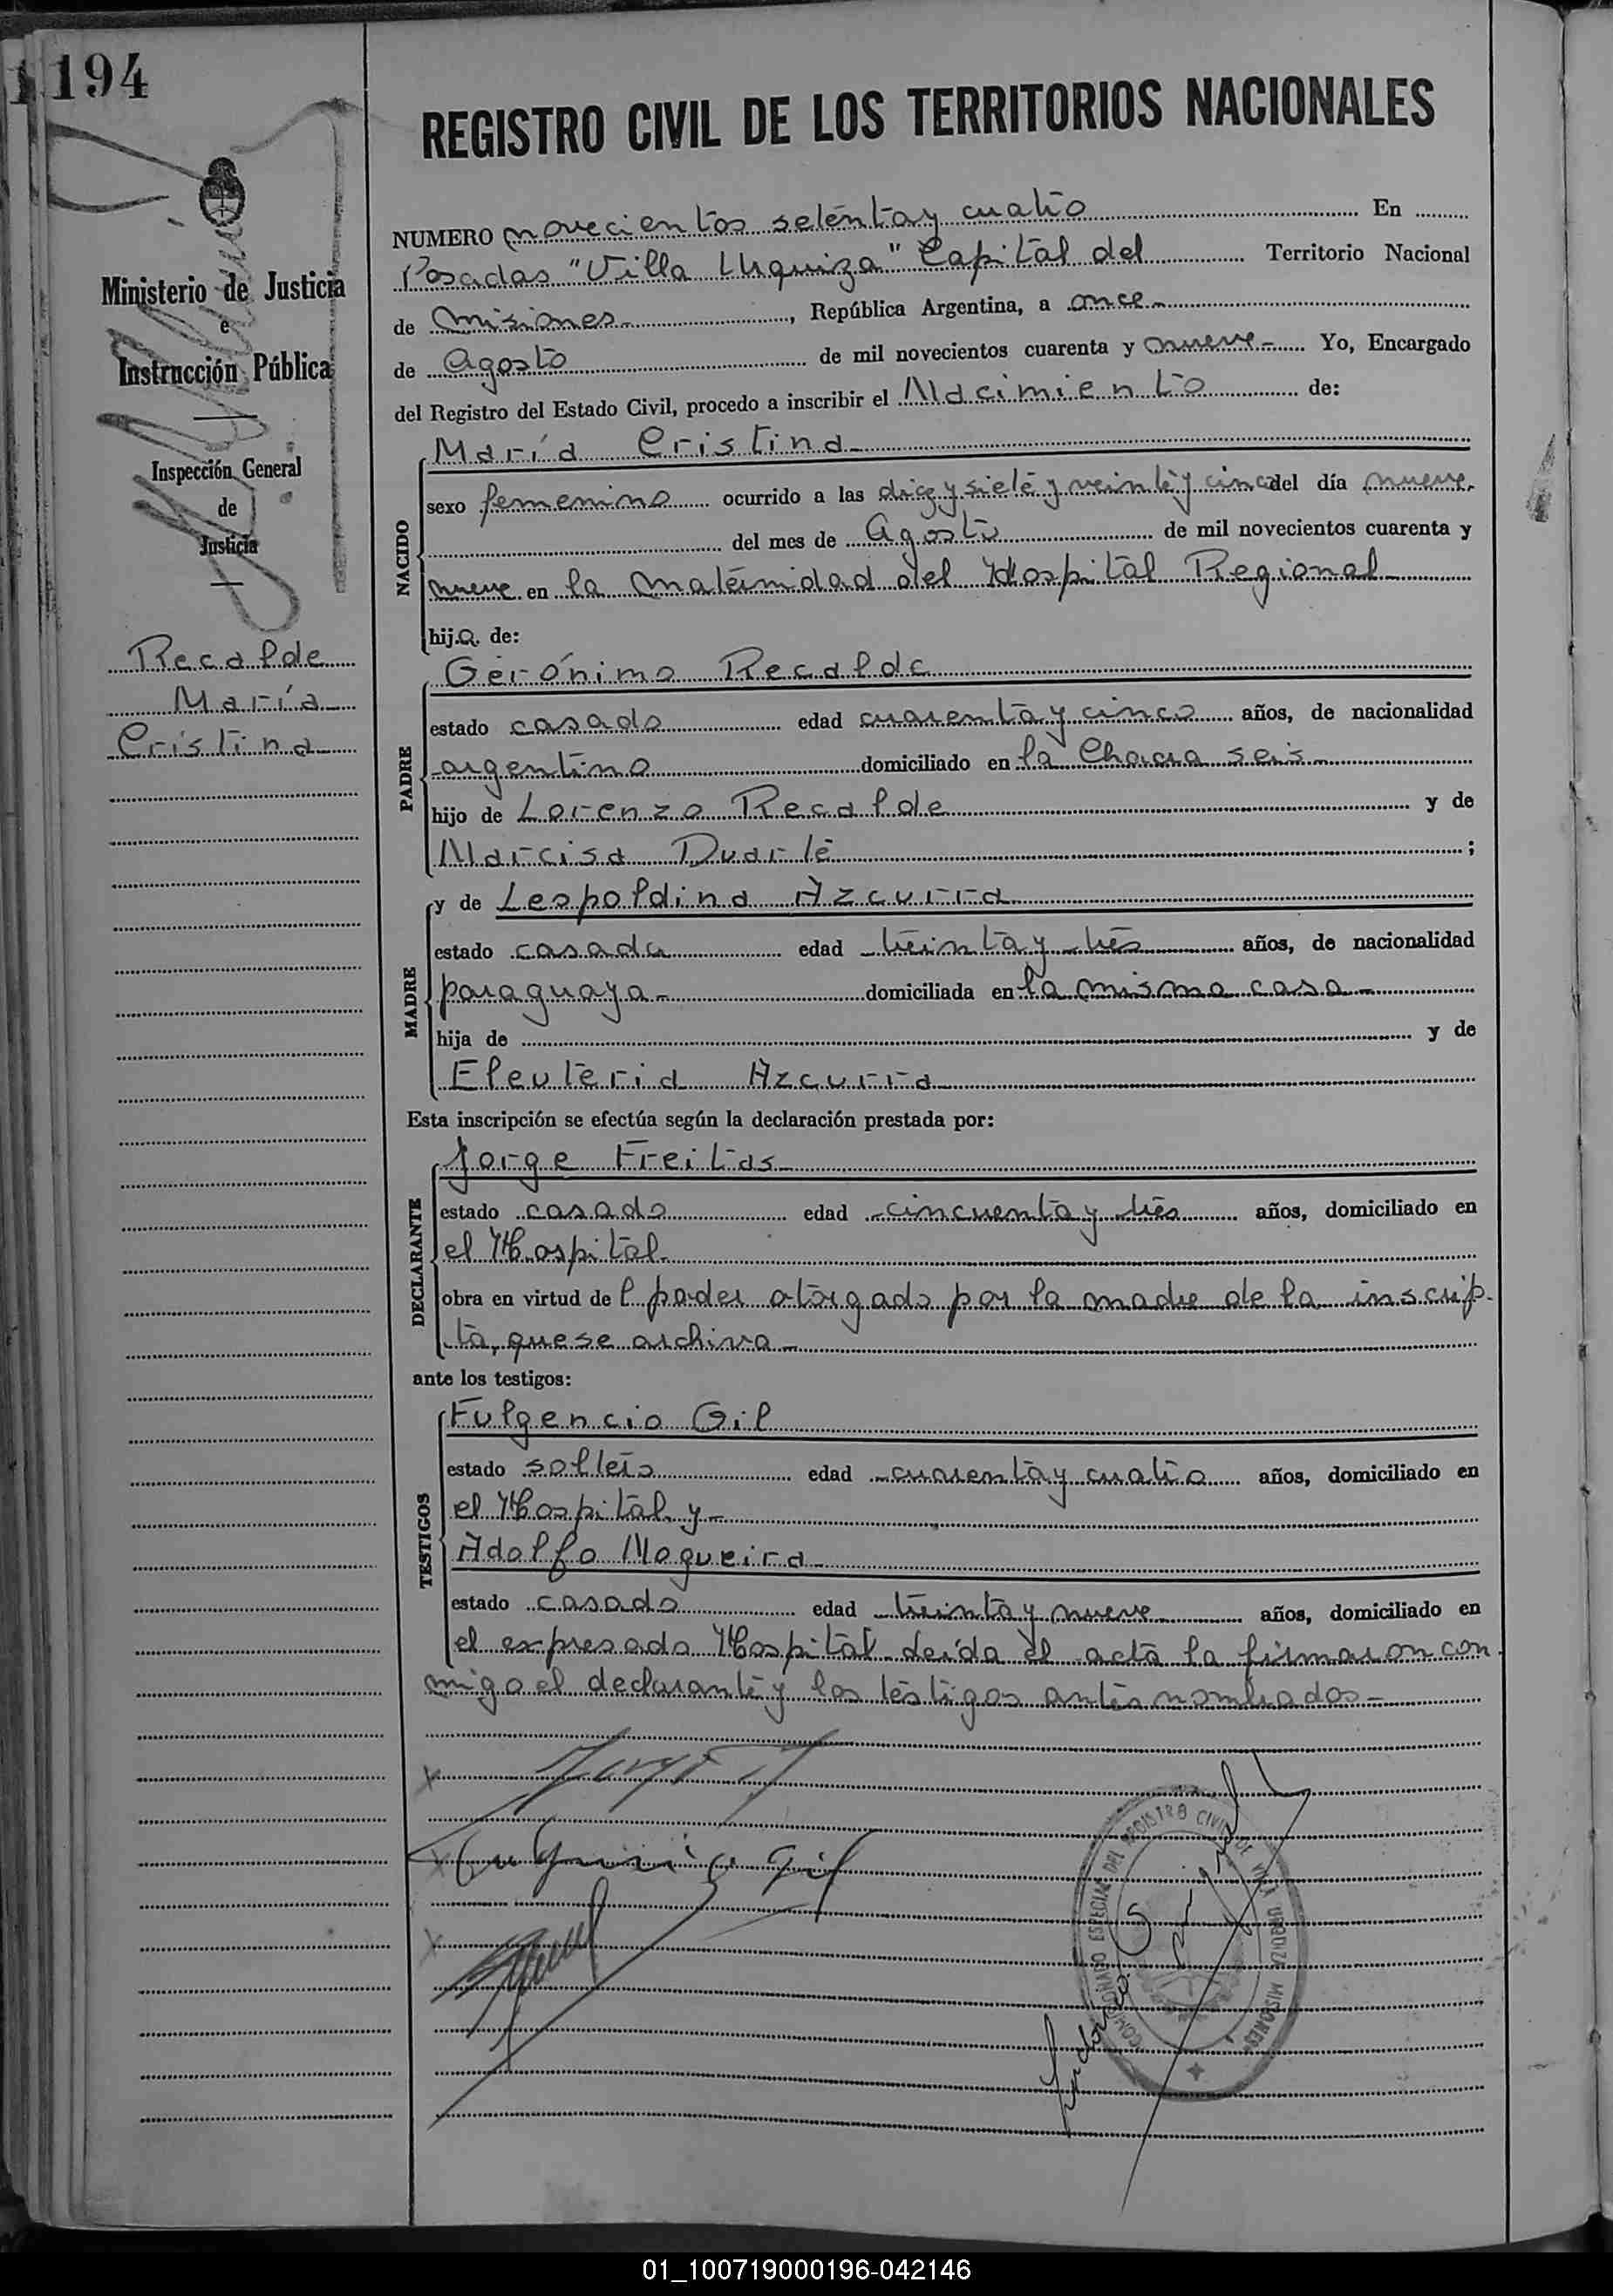 194
REGISTRO CIVIL DE LOS TERRITORIOS NACIONALES
Ministerio de Justicia
e
Instrucción Pública
Inspección General
de
Justicia
Recalde
María
Cristina
NUMERO novecientos setenta y cuatro En
Posadas "Villa Urquiza" Capital del Territorio Nacional
de Misiones, República Argentina, a once
de Agosto de mil novecientos cuarenta y nueve Yo, Encargado
del Registro del Estado Civil, procedo a inscribir el Nacimiento de:
NACIDO
María Cristina
sexo femenino ocurrido a las diez y siete y veinte y cinco del día nueve
del mes de Agosto de mil novecientos cuarenta y
nueve en la maternidad del Hospital Regional
hija de:
PADRE
Gerónimo Recalde
estado casado edad cuarenta y cinco años, de nacionalidad
argentino domiciliado en la Chacra seis
hijo de Lorenzo Recalde y de
Narcisa Duarte ;
MADRE
y de Leopoldina Azcurra
estado casada edad treinta y tres años, de nacionalidad
paraguaya domiciliada en la misma casa
hija de y de
Eleuteria Azcurra
Esta inscripción se efectúa según la declaración prestada por:
DECLARANTE
Jorge Freitas
estado casado edad cincuenta y tres años, domiciliado en
el Hospital
obra en virtud del poder otorgado por la madre de la inscrip-
ta, que se archiva
ante los testigos:
TESTIGOS
Fulgencio Gil
estado soltero edad cuarenta y cuatro años, domiciliado en
el Hospital y
Adolfo Nogueira
estado casado edad treinta y nueve años, domiciliado en
el expresado Hospital. Leída el acta la firmaron con
migo el declarante y los testigos antes nombrados
Fulgencio Gil
COMISIONADO ESPECIAL DEL REGISTRO CIVIL DE VILLA URQUIZA MISIONES
01_100719000196-042146